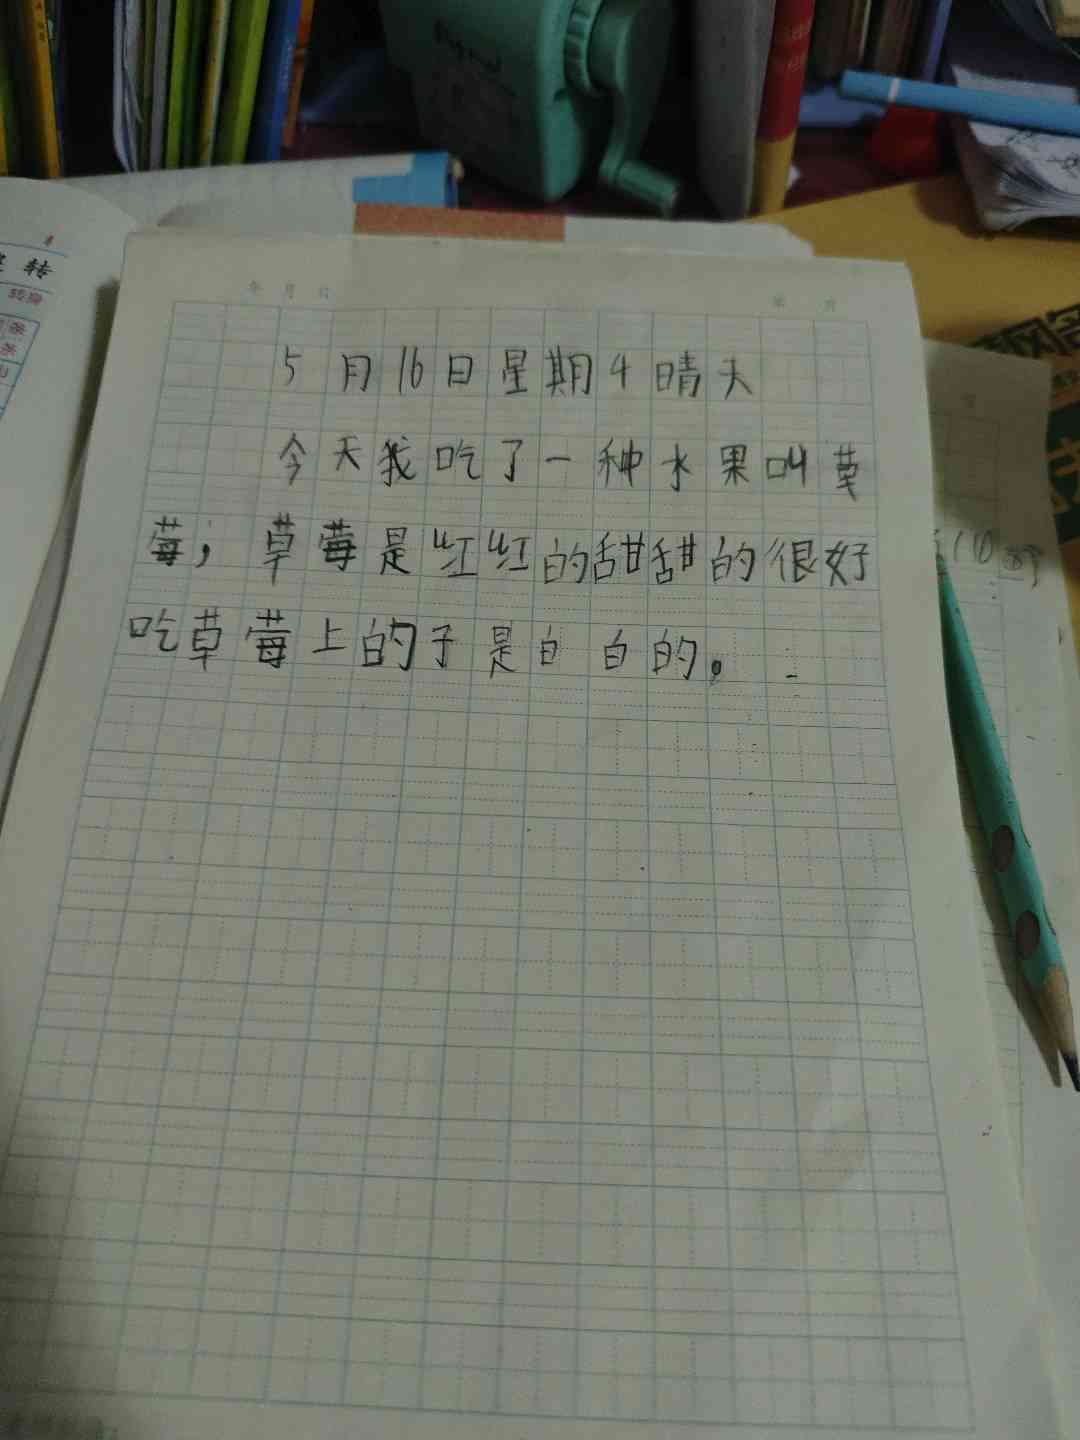 转
转身
年 月 日
5月16日星期4晴天
今天我吃了一种水果叫草
莓，草莓是红红的甜甜的很好
吃草莓上的子是白白的。